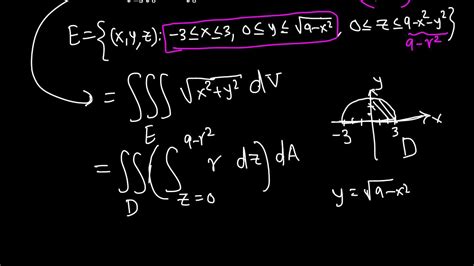 E = {(x,y,z): -3≤x≤3, 0≤y≤√9-x², 0≤z≤9-x²-y²}
9-r²
= ∭_E √x²+y² dV
= ∬_D (∫_{z=0}^{9-r²} r dz) dA
y
x
-3
3
D
y = √9-x²